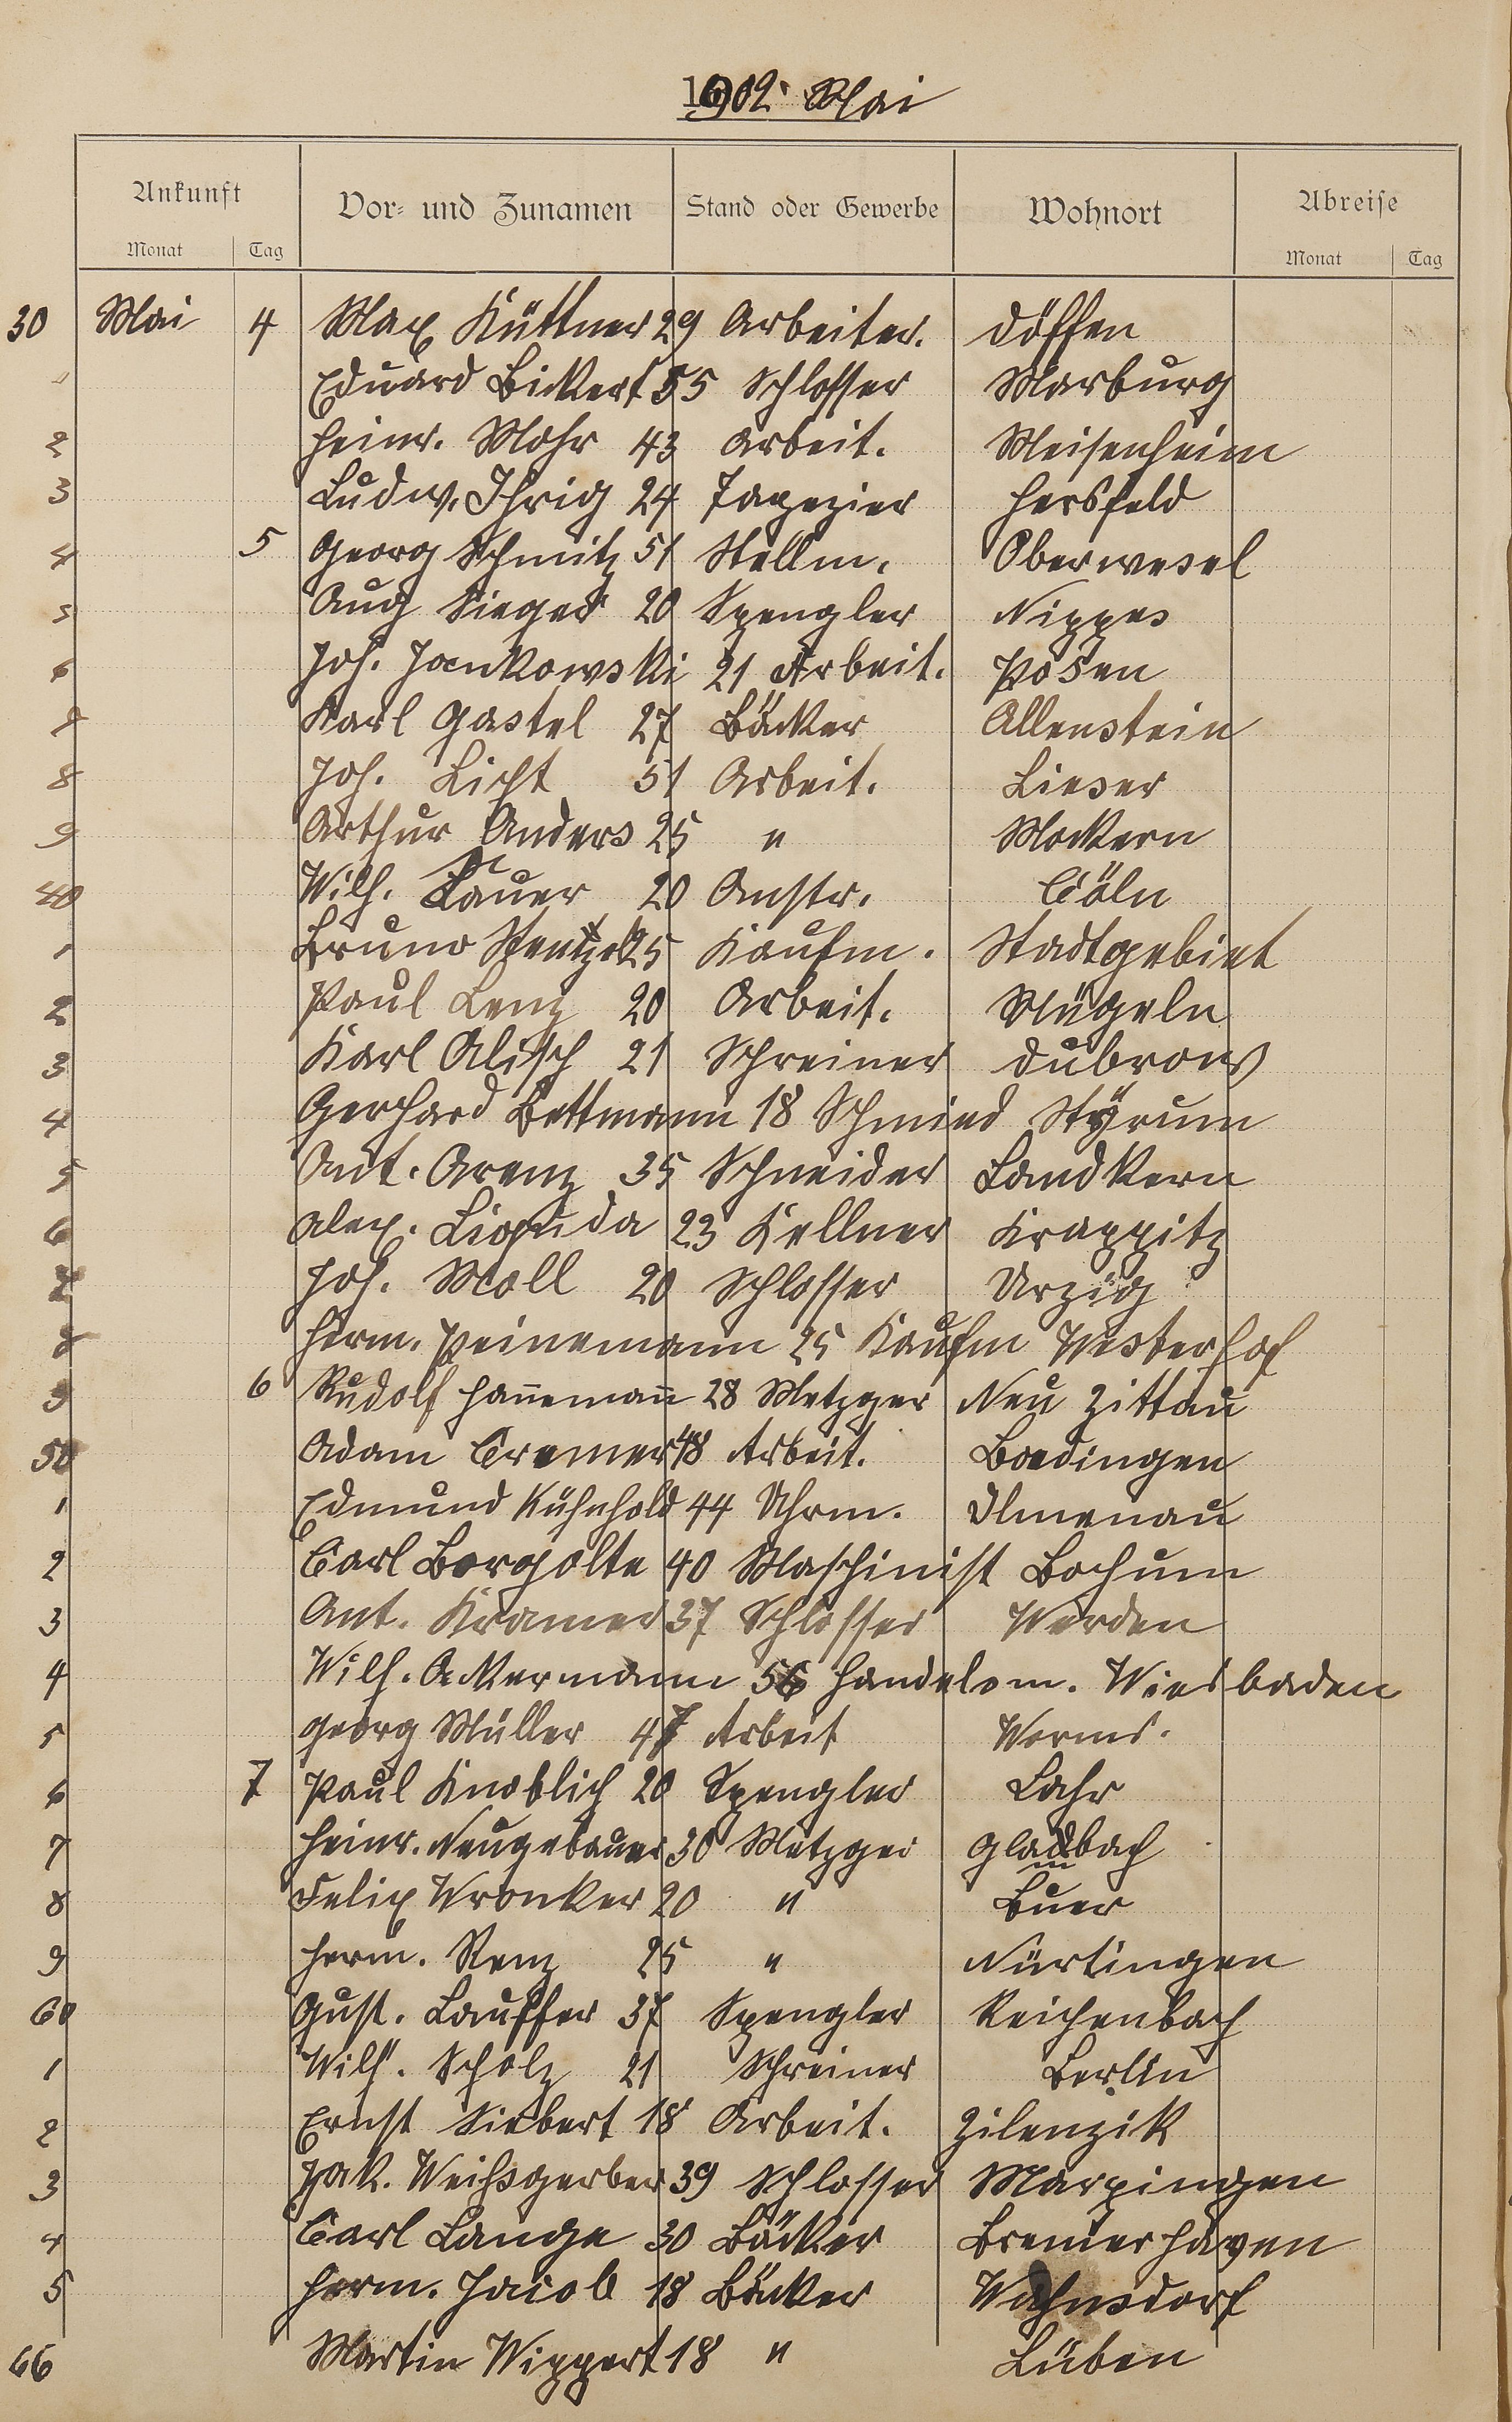 1902 Mai
Ankunft Vor- und Zunamen Stand oder Gewerbe Wohnort Abreise
Monat Tag Monat Tag
30 Mai 4 Max Küttner 29 Arbeiter. Döffen
Eduard Bickert 55 Schlosser Marburg
2 Heinr. Mohr 43 Arbeit. Meisenheim
3 Ludw. Ihrig 24 Tapezier Hersfeld
4 5 Georg Schmitz 51 Stellm. Oberwesel
5 Aug Sieger 20 Spengler Nippes
6 Joh. Jankowski 21 Arbeit. Posen
7 Karl Gastel 27 Bäcker Allenstein
8 Joh. Licht 51 Arbeit. Lieser
9 Arthur Anders 25 " Mockern
40 Wilh. Lauer 20 Anstr. Cöln
1 Bruno 25 Kaufm. Stadtgebiet
2 Paul Lenz 20 Arbeit. Mügeln
3 Karl Alisch 21 Schreiner Dubrow
4 Gerhard Bettmann 18 Schmied Styrum
5 Ant. Arenz 35 Schneider Landkern
6 Alex. Ligenda 23 Kellner Krappitz
7 Joh. Moll 20 Schlosser Urzig
8 Herm. Peinemann 25 Kaufm Westerhof
9 6 Rudolf Hannemann 28 Metzger Neu Zittau
50 Adam Cremer 48 Arbeit. Boedingen
1 Edmund Kühnhold 44 Uhrm. Ilmenau
2 Carl Borgolte 40 Maschinist Bochum
3 Ant. Kramer 37 Schlosser Werden
4 Wilh. Ackermann 56 Handelsm. Wiesbaden
5 Georg Müller 47 Arbeit Worms.
6 7 Paul Knoblich 20 Spengler Lahr
7 Heinr. Neugebauer 30 Metzger Gladbach
8 Felix Wronker 20 " Buer
9 Herm. Renz 25 " Nürtingen
60 Gust. Lauffer 37 Spengler Reichenbach
1 Wilh. Scholz 21 Schreiner Berlin
2 Ernst Siebert 18 Arbeit. Zilenzik
3 Jak. Weihsgerber 39 Schlosser Marpingen
4 Carl Lange 30 Bäcker Bremerhaven
5 Herm. Jacob 18 Bäcker Wahnsdorf
66 Martin Wippert 18 " Lüben